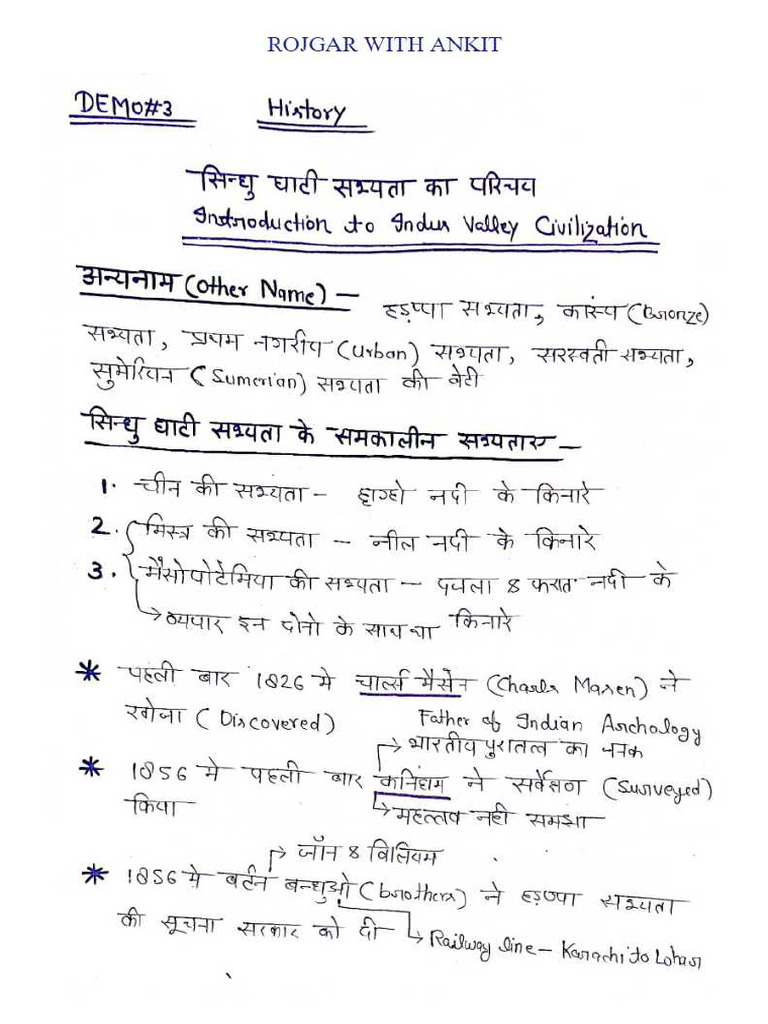 ROJGAR WITH ANKIT
DEMO#3 History
सिन्धु घाटी सभ्यता का परिचय
Introduction to Indus Valley Civilization
अन्यनाम (Other Name) - हड़प्पा सभ्यता, कांस्य (Bronze)
सभ्यता, प्रथम नगरीय (Urban) सभ्यता, सरस्वती सभ्यता,
सुमेरियन (Sumerian) सभ्यता की बेटी
सिन्धु घाटी सभ्यता के समकालीन सभ्यताए -
1. चीन की सभ्यता - हाग्हो नदी के किनारे
2. मिस्त्र की सभ्यता - नील नदी के किनारे
3. मैसोपोटेमिया की सभ्यता - दजला & फरात नदी के
→ व्यपार इन दोनो के साथ था किनारे
* पहली बार 1826 मे चार्ल्स मैसेन (Charls Masen) ने
खोजा (Discovered) Father of Indian Archology
→ भारतीय पुरातत्व का जनक
* 1856 मे पहली बार कनिंघम ने सर्वेक्षण (Surveyed)
किया → महत्तव नही समझा
→ जॉन & विलियम
* 1856 मे बर्टन बन्धुओ (brothers) ने हड़प्पा सभ्यता
की सूचना सरकार को दी → Railway line - Karachi to Lohar